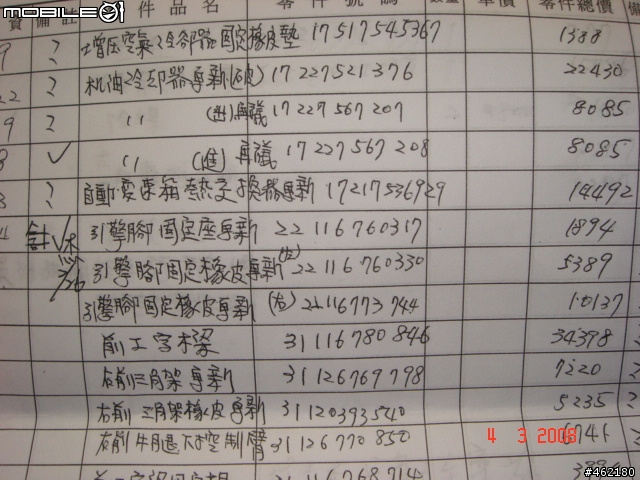 MOBILE01
貨 備 件 品 名 零 件 號 碼 數量 單價 零件總價 備
9 ? 增压空氣冷卻器固定橡皮墊 17517545367 1388
? 机油冷却器更新 17 227521 376 22430
9 ? 〃 (出)再議 17 227 567 207 8085
✓ 〃 (進)再議 17 227567 208 8085
? 自動変速箱熱交換器更新 17217536929 14492
引擎腳固定座更新 22 116760317 1894
引擎腳固定橡皮更新(左) 22 116 760330 5389
引擎腳固定橡皮更新(右) 22116773744 10137
前工字樑 31 116780846 34398
右前三角架更新 31 126769798 7220 ?
右前三角架橡皮更新 31120393540 5235 ?
右前 下控制臂 31 126770 850 6741
4 3 2008
31116768714
#462180